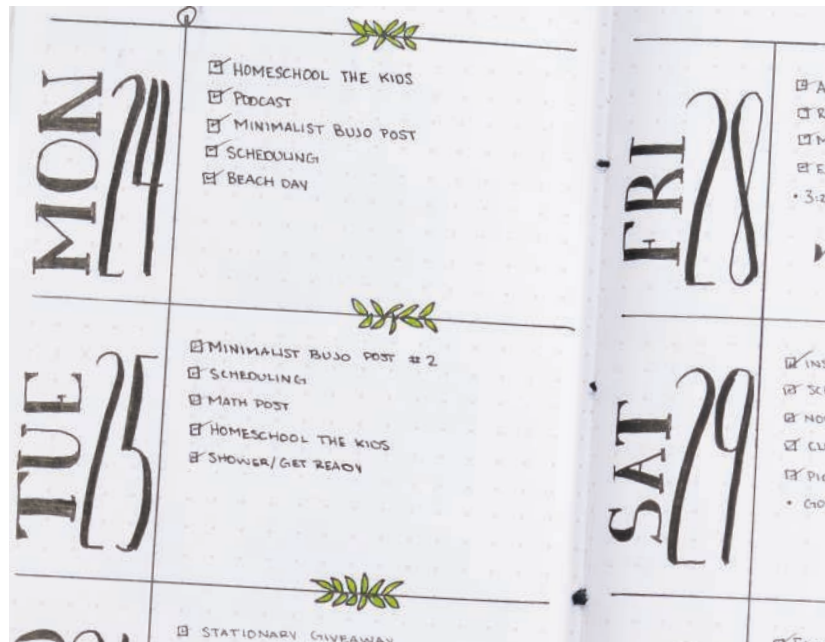 MON 24
HOMESCHOOL THE KIDS
PODCAST
MINIMALIST BUJO POST
SCHEDULING
BEACH DAY
TUE 25
MINIMALIST BUJO POST #2
SCHEDULING
MATH POST
HOMESCHOOL THE KIDS
SHOWER/GET READY
STATIONARY GIVEAWAY
FRI 28
SAT 29